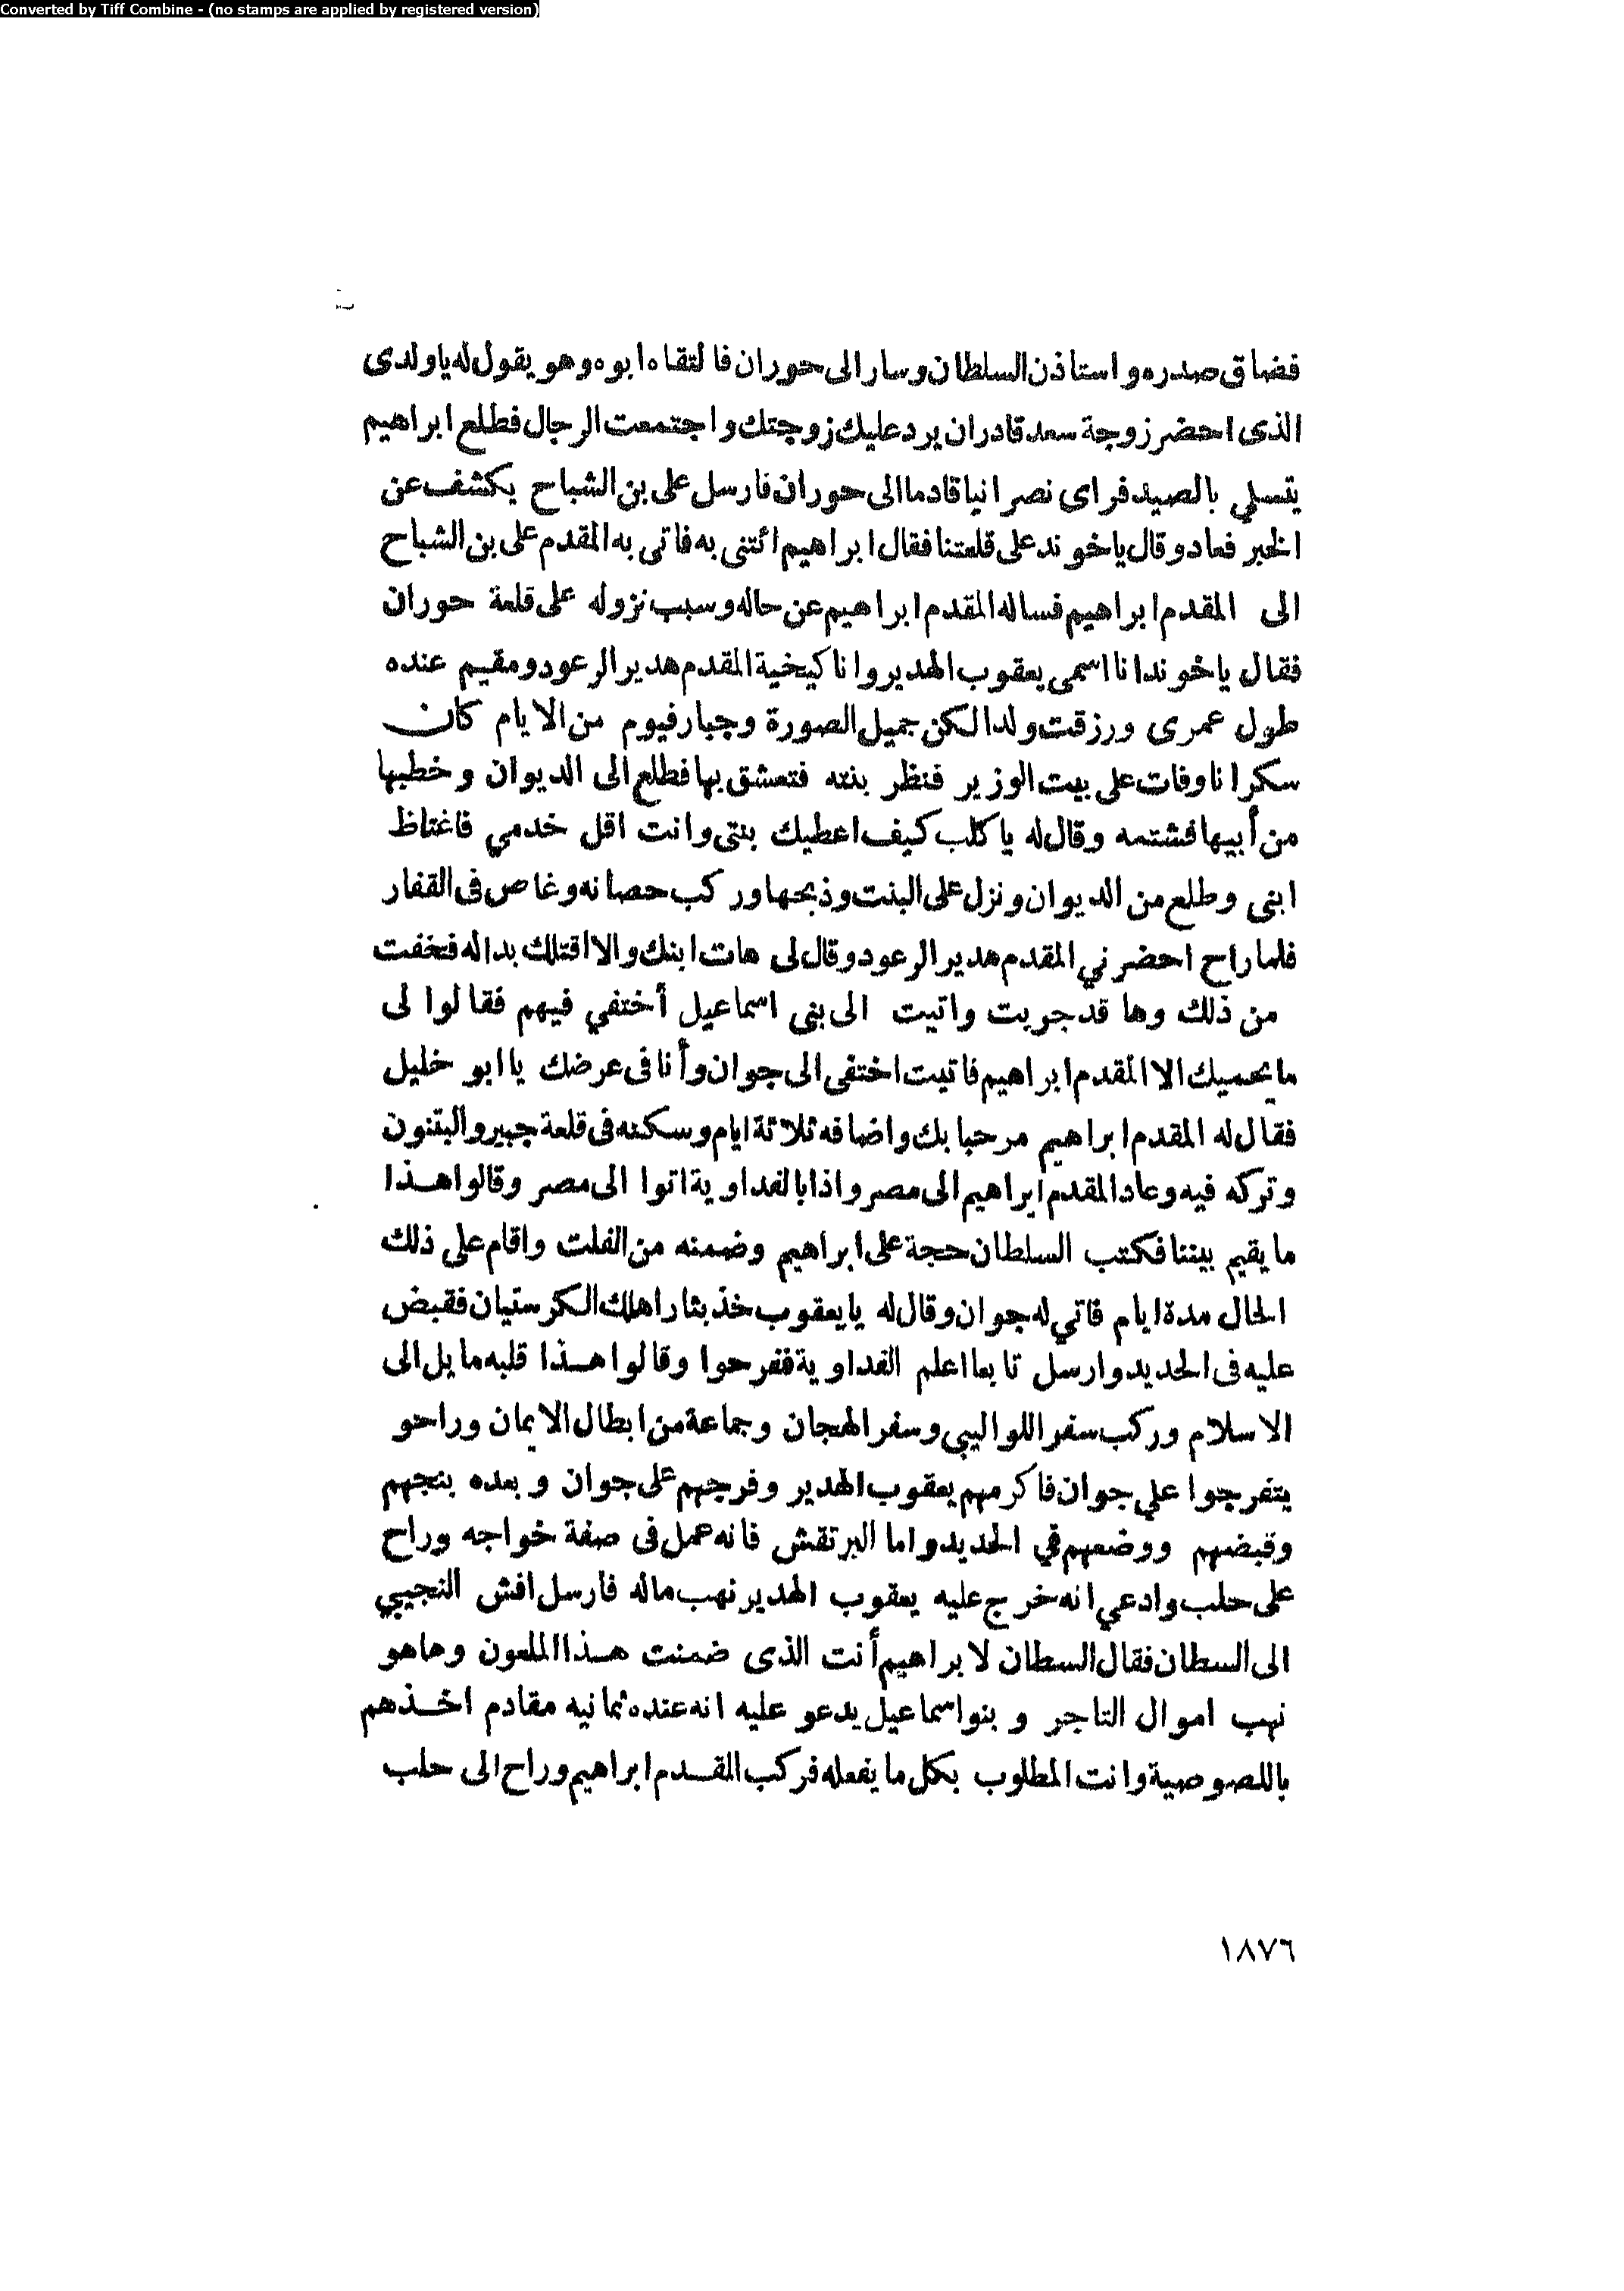 Converted by Tiff Combine - (no stamps are applied by registered version)
فضاق صدره واستاذن السلطان وسار الى حوران فالتقاه ابوه وهو يقول له ياولدى
الذى احضر زوجة سعد قادر ان يرد عليك زوجتك واجتمعت الرجال فطلع ابراهيم
يتسلي بالصيد فراى نصرانيا قادما الى حوران فارسل على بن الشباح يكشف عن
الخبر فعاد وقال ياخوند على قلعتنا فقال ابراهيم ائتنى به فاتى به المقدم على بن الشباح
الى المقدم ابراهيم فساله المقدم ابراهيم عن حاله وسبب نزوله على قلعة حوران
فقال ياخوند انا اسمى يعقوب الهدير وانا كيخية المقدم هدير الرعود ومقيم عنده
طول عمرى ورزقت ولدا لكن جميل الصورة وجبار فيوم من الايام كان
سكرانا وفات على بيت الوزير فنظر بنته فتعشق بها فطلع الى الديوان وخطبها
من أبيها فشتمه وقال له ياكلب كيف اعطيك بنتى وانت اقل خدمي فاغتاظ
ابنى وطلع من الديوان ونزل على البنت وذبحها وركب حصانه وغاص فى القفار
فلما راح احضرني المقدم هدير الرعود وقال لى هات ابنك والا اقتلك بداله فتخفت
من ذلك وها قد جربت واتيت الى بنى اسماعيل أختفي فيهم فقالوا لى
ما يحميك الا المقدم ابراهيم فاتيت اختفى الى جوان وأنا فى عرضك ياابو خليل
فقال له المقدم ابراهيم مرحبا بك واضافه ثلاثة ايام وسكنه فى قلعة جبير والبتنون
وتركه فيه وعاد المقدم ابراهيم الى مصر واذا بالفداوية اتوا الى مصر وقالوا هذا
ما يقيم بيننا فكتب السلطان حجة على ابراهيم وضمنه من الفلت واقام على ذلك
الحال مدة ايام فاتي له جوان وقال له يايعقوب خذ بثار اهلك الكرستيان فقبض
عليه فى الحديد وارسل تابعا اعلم الفداوية ففرحوا وقالوا هذا قلبه مايل الى
الاسلام وركب سفر اللواليبي وسفر الهجان وجماعة من ابطال الايمان وراحو
يتفرجوا علي جوان فاكرمهم يعقوب الهدير وفرجهم على جوان وبعده بنجهم
وقبضهم ووضعهم في الحديد واما البرتقش فانه عمل فى صفة خواجه وراح
على حلب وادعي انه خرج عليه يعقوب الهدير نهب ماله فارسل افش النجيبي
الى السطان فقال السطان لابراهيم أنت الذى ضمنت هذا الملعون وماهو
نهب اموال التاجر وبنوا سماعيل يدعو عليه انه عنده ثمانيه مقادم اخذهم
باللصوصية وانت المطلوب بكل ما يفعله فركب المقدم ابراهيم وراح الى حلب
١٨٧٦